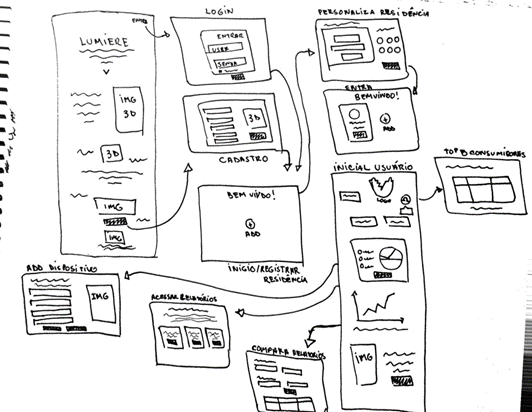 ENTRE
LUMIERE
IMG
3D
3D
IMG
IMG
LOGIN
ENTRAR
USER
SENHA
3D
CADASTRO
BEM VINDO!
ADD
INICIO/REGISTRAR
RESIDÊNCIA
PERSONALIZA RESIDÊNCIA
ENTRA
BEMVINDO!
ADD
INICIAL USUÁRIO
LOGO
IMG
TOP 3 CONSUMIDORES
ADD DISPOSITIVO
IMG
ACESSAR RELATÓRIOS
COMPARA RELATÓRIOS